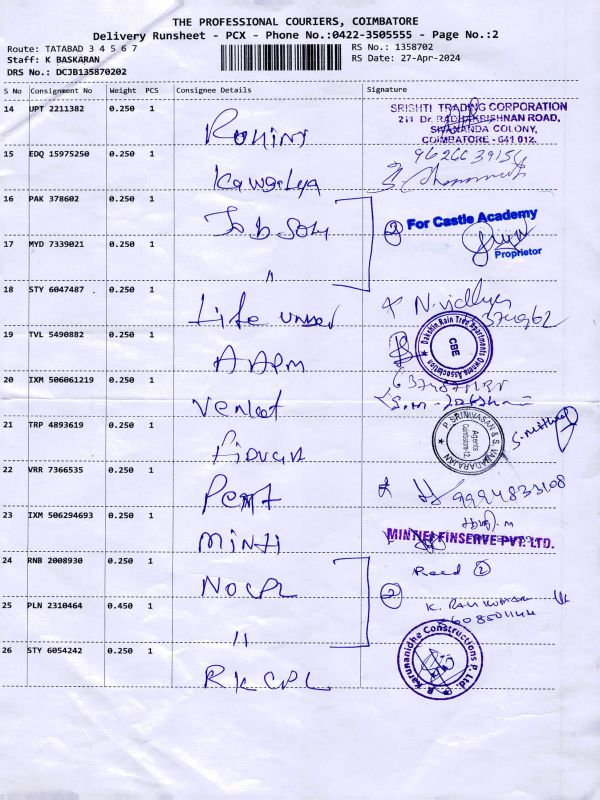 THE PROFESSIONAL COURIERS, COIMBATORE
Delivery Runsheet - PCX - Phone No.:0422-3505555 - Page No.:2
Route: TATABAD 3 4 5 6 7
Staff: K BASKARAN
DRS No.: DCJB135870202
RS No.: 1358702
RS Date: 27-Apr-2024
S No Consignment No Weight PCS Consignee Details Signature
14 UPT 2211382 0.250 1 Rohini
SRISHTI TRADING CORPORATION
211 Dr. RADHAKRISHNAN ROAD,
SIVANANDA COLONY,
COIMBATORE - 641 012.
15 EDQ 15975250 0.250 1
16 PAK 378602 0.250 1
2 For Castle Academy
Proprietor
17 MYD 7339021 0.250 1 "
18 STY 6047487 0.250 1 Life
N. Vidhya
19 TVL 5490882 0.250 1
Dakshin Rain Tree Apartments Owners Association
CBE
20 IXM 506061219 0.250 1 Venket
21 TRP 4893619 0.250 1
P. SRINIVASAN & S. VARADARAJAN
Agents
Coimbatore-12
22 VRR 7366535 0.250 1
9994833108
23 IXM 506294693 0.250 1
FINSERVE PVT. LTD.
24 RNB 2008930 0.250 1 NOCPL
Recd 2
25 PLN 2310464 0.450 1 "
2 K. RAVI KUMAR
26 STY 6054242 0.250 1 RKCPL
R. Karunanidhe Constructions P. Ltd.